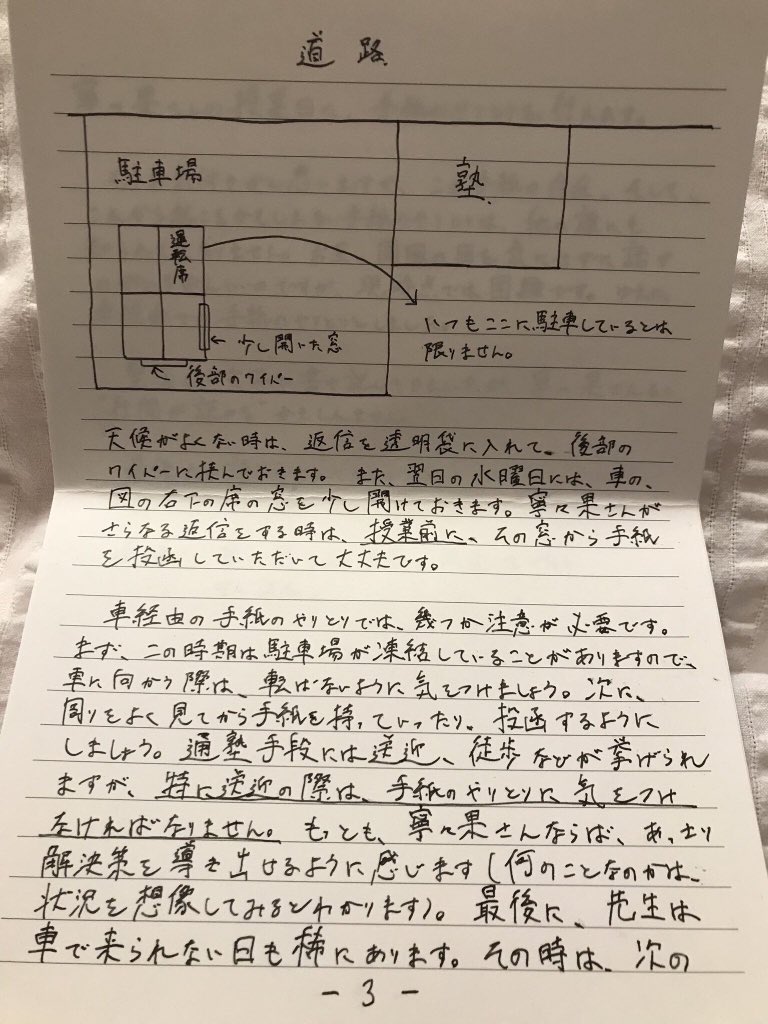 道路
駐車場
塾
運転席
いつもここに駐車しているとは
限りません。
←少し開いた窓
←後部のワイパー
天候がよくない時は、返信を透明袋に入れて、後部の
ワイパーに挟んでおきます。また、翌日の水曜日には、車の、
図の右下の席の窓を少し開けておきます。寧々果さんが
さらなる返信をする時は、授業前に、その窓から手紙
を投函していただいて大丈夫です。
車経由の手紙のやりとりでは、幾つか注意が必要です。
まず、この時期は駐車場が凍結していることがありますので、
車に向かう際は、転ばないように気をつけましょう。次に、
周りをよく見てから手紙を持っていったり、投函するように
しましょう。通塾手段には送迎、徒歩などが挙げられ
ますが、特に送迎の際は、手紙のやりとりに気をつけ
なければなりません。もっとも、寧々果さんならば、あっさり
解決策を導き出せるように感じます(何のことなのかは、
状況を想像してみるとわかります)。最後に、先生は
車で来られない日も稀にあります。その時は、次の
-3-